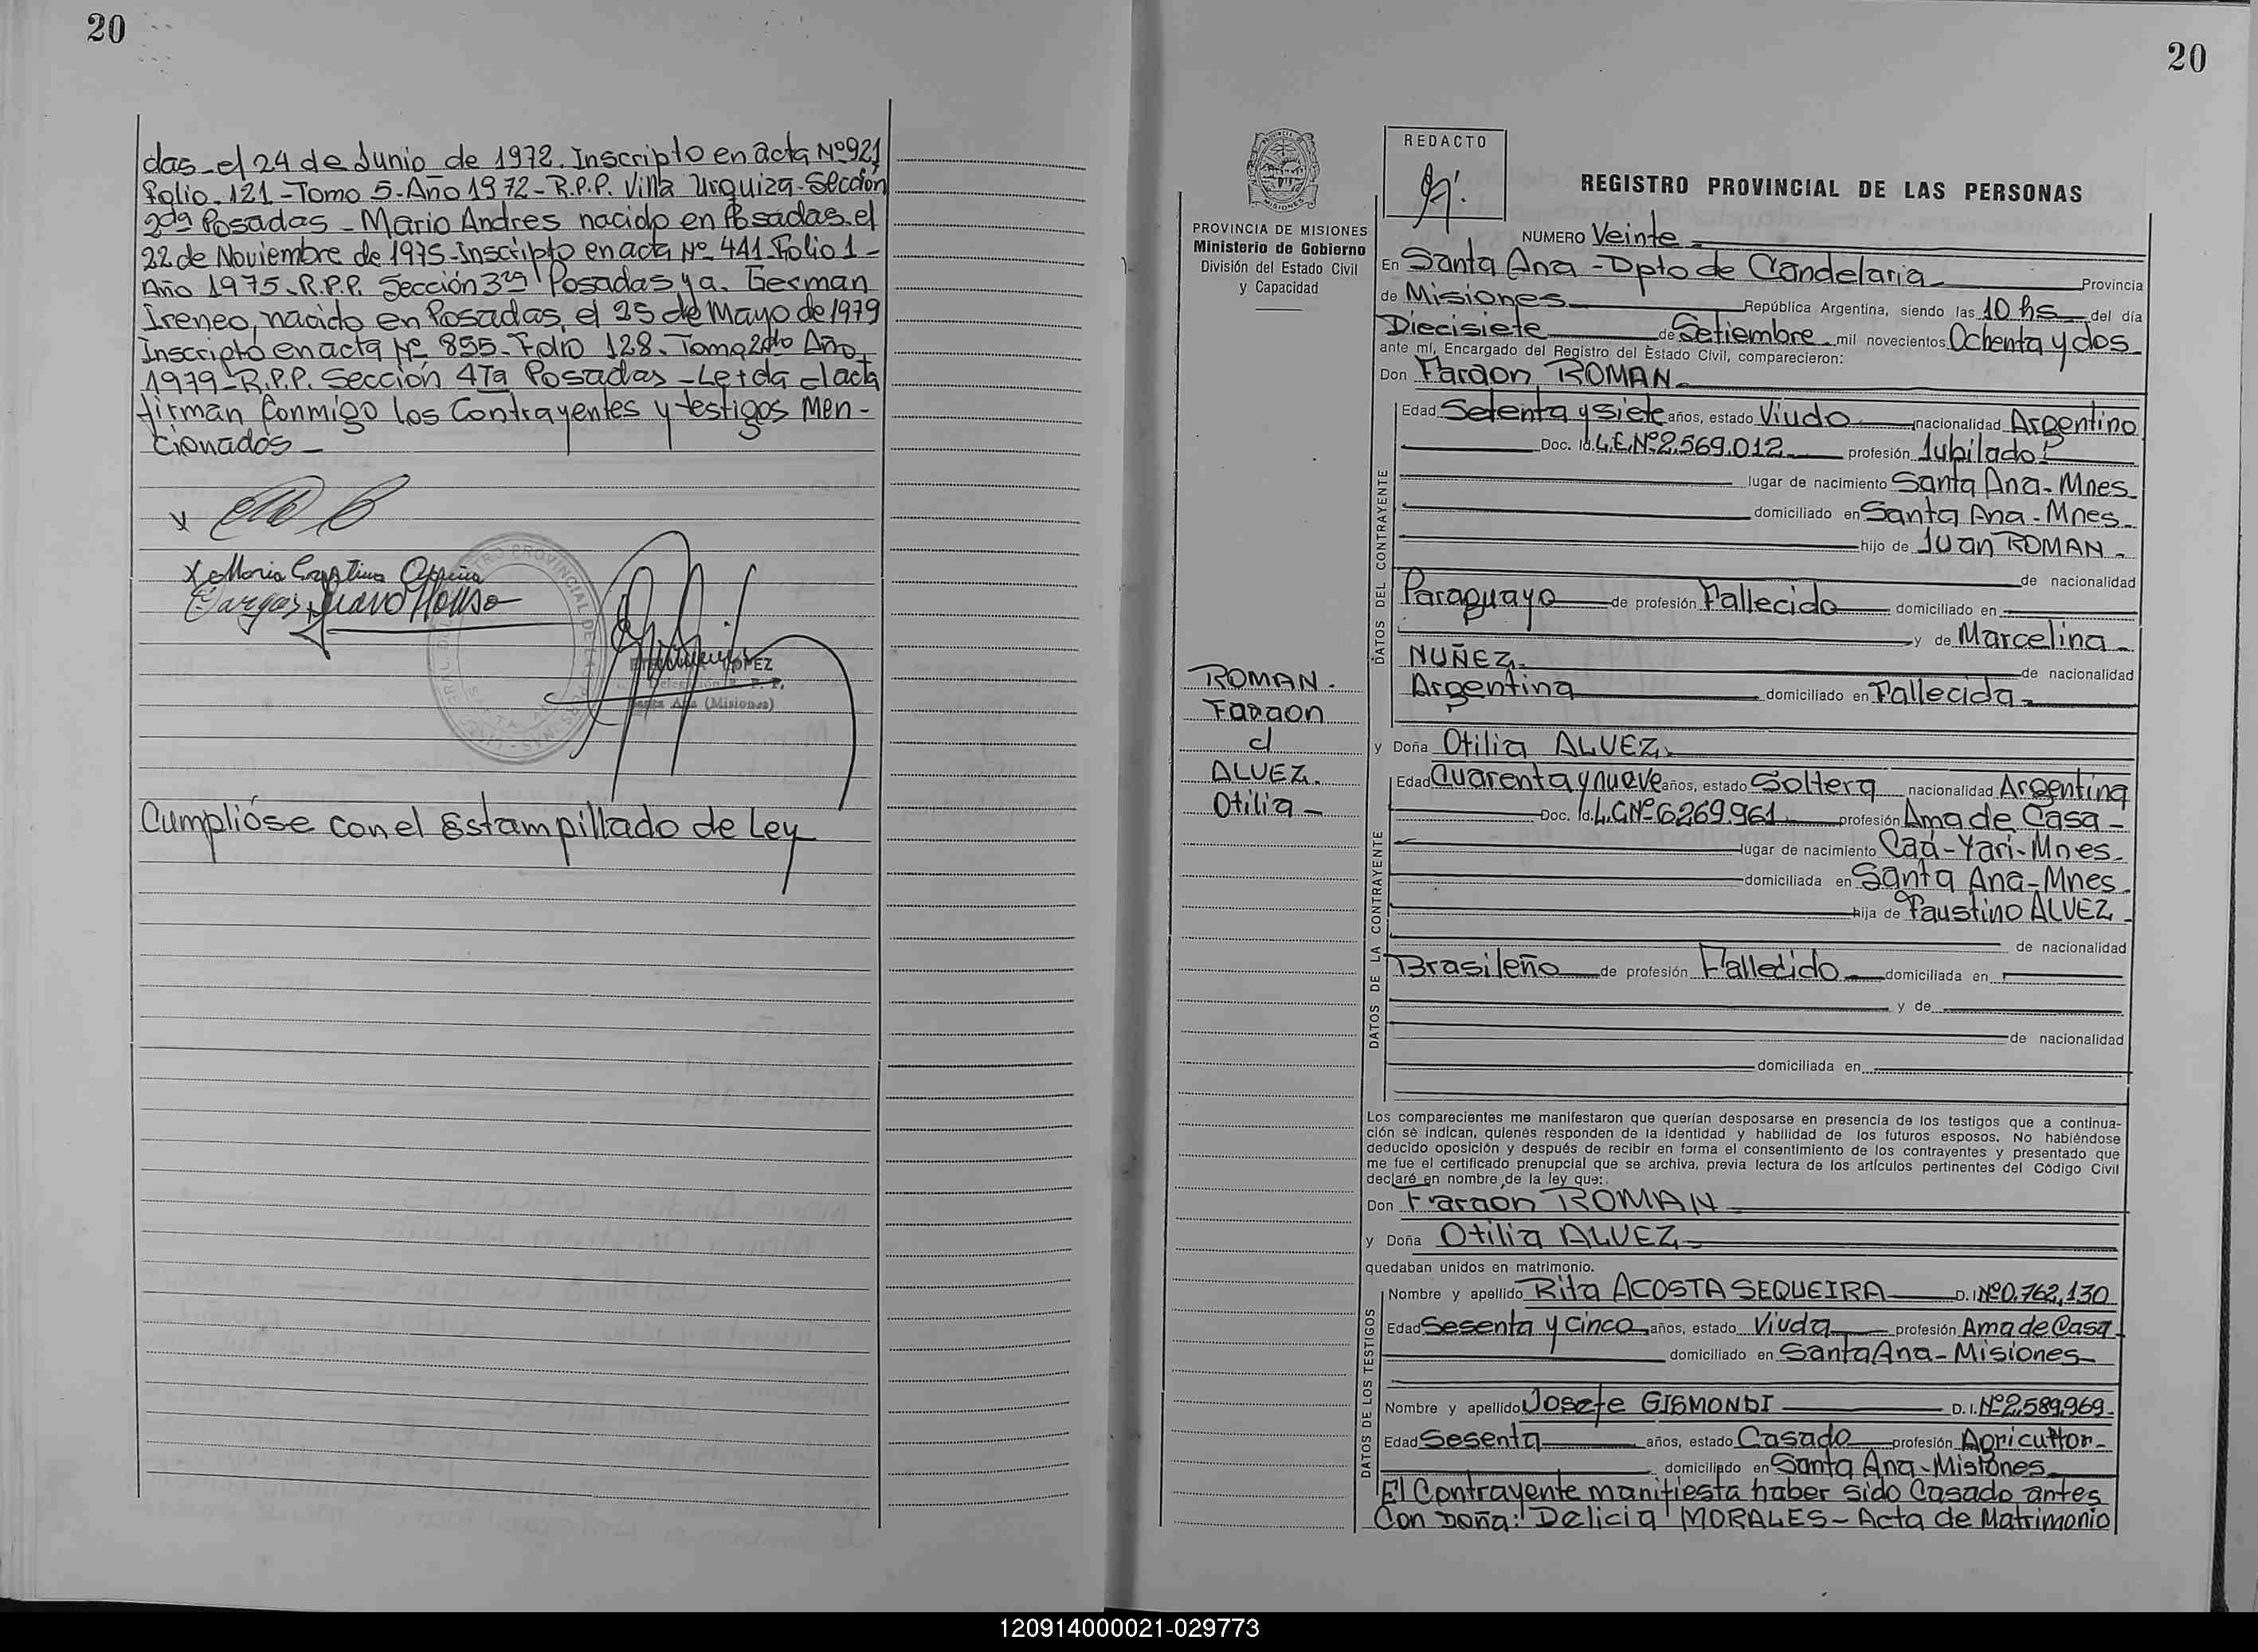 20
das_el 24 de Junio de 1972. Inscripto en acta Nº 921
folio. 121 - Tomo 5 - Año 1972 - R.P.P. Villa Urquiza - Sección
2da Posadas - Mario Andres nacido en Posadas. el
22 de Noviembre de 1975 - Inscripto en acta Nº 441 - Folio 1 -
Año 1975. R.P.P. Sección 3ra Posadas y a. German
Ireneo, nacido en Posadas, el 25 de Mayo de 1979
Inscripto en acta Nº 855 - Folio 128. Tomo 2do Año
1979 - R.P.P. Sección 4Ta Posadas - Leida el acta
firman conmigo los Contrayentes y testigos Men-
cionados -
(Misiones)
Cumplióse con el Estampillado de Ley
20
PROVINCIA DE MISIONES
Ministerio de Gobierno
División del Estado Civil
y Capacidad
ROMAN.
Faraon
c/
ALVEZ.
Otilia -
REDACTO
REGISTRO PROVINCIAL DE LAS PERSONAS
NUMERO Veinte
En Santa Ana - Dpto de Candelaria Provincia
de Misiones República Argentina, siendo las 10 hs del día
Diecisiete de Setiembre mil novecientos Ochenta y dos
ante mí, Encargado del Registro del Estado Civil, comparecieron:
Don Faraon ROMAN
DATOS DEL CONTRAYENTE
Edad Setenta y siete años, estado Viudo nacionalidad Argentino
Doc. Id. L.E. Nº 2.569.012 profesión Jubilado
lugar de nacimiento Santa Ana - Mnes
domiciliado en Santa Ana - Mnes
hijo de Juan ROMAN -
de nacionalidad
Paraguayo de profesión Fallecido domiciliado en
y de Marcelina
NUÑEZ de nacionalidad
Argentina domiciliado en Fallecida
y Doña Otilia ALVEZ
DATOS DE LA CONTRAYENTE
Edad Cuarenta y nueve años, estado Soltera nacionalidad Argentina
Doc. Id. L.C Nº 6269.961 profesión Ama de Casa -
lugar de nacimiento Caá-Yari-Mnes
domiciliada en Santa Ana - Mnes
hija de Faustino ALVEZ
de nacionalidad
Brasileño de profesión Fallecido domiciliada en
y de
de nacionalidad
domiciliada en
Los comparecientes me manifestaron que querían desposarse en presencia de los testigos que a continua-
ción se indican, quienes responden de la identidad y habilidad de los futuros esposos. No habiéndose
deducido oposición y después de recibir en forma el consentimiento de los contrayentes y presentado que
me fue el certificado prenupcial que se archiva, previa lectura de los artículos pertinentes del Código Civil
declaré en nombre de la ley que:
Don Faraon ROMAN
y Doña Otilia ALVEZ
quedaban unidos en matrimonio.
DATOS DE LOS TESTIGOS
Nombre y apellido Rita ACOSTA SEQUEIRA D. I. Nº 0.762.130
Edad Sesenta y cinco años, estado Viuda profesión Ama de Casa
domiciliado en Santa Ana - Misiones
Nombre y apellido Josefe GISMONDI D. I. Nº 2.589.969
Edad Sesenta años, estado Casado profesión Agricultor -
domiciliado en Santa Ana - Misiones
El Contrayente manifiesta haber sido Casado antes
Con Doña: Delicia MORALES - Acta de Matrimonio
120914000021-029773